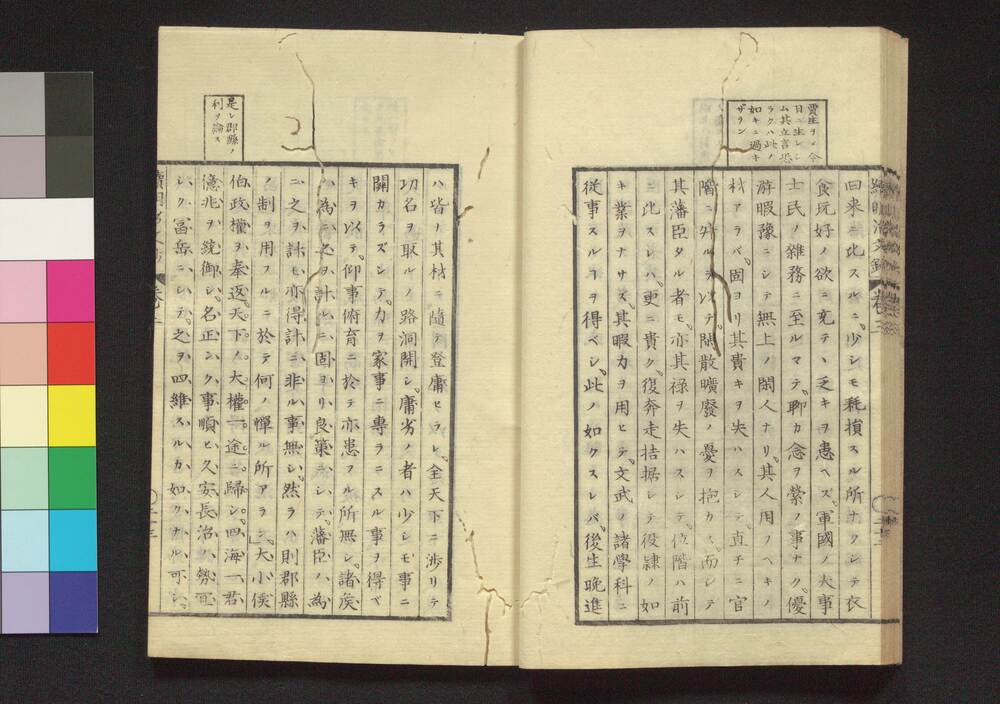 賈生ヲ〆今
日ニ生レシ
ム其立言恐
ラクハ此ノ
如キニ過キ
ザラン
續明治文鈔 卷三
回来ニ比スルニ少シモ耗損スル所ナクシテ衣
食玩好ノ欲ニ充テヽ乏キヲ患ヘズ軍國ノ大事
士民ノ雑務ニ至ルマデ聊カ念ヲ縈ノ事ナク優
游暇豫ニシテ無上ノ閑人ナリ其人用フヘキノ
材アラバ固ヨリ其貴キヲ失ハスシテ直チニ官
階ニ列ルヲ以テ閑散曠廢ノ憂ヲ抱カス而レテ
其藩臣タル者モ亦其禄ヲ失ハスシテ位階ハ前
ニ比スレハ更ニ貴ク復奔走拮据シテ役隷ノ如
キ業ヲナサズ其暇力ヲ用ヒテ文武ノ諸學科ニ
従事スルヿヲ得ベシ此ノ如クスレバ後生晩進
ハ皆ナ其材ニ隨テ登庸セラレ全天下ニ渉リテ
功名ヲ取ルノ路洞開シ庸劣ノ者ハ少シモ事ニ
關カラズシテ力ヲ家事ニ専ラニスル事ヲ得ベ
キヲ以テ仰事俯育ニ於テ亦患フル所無シ諸矦
ノ為ニ之ヲ計レハ固ヨリ良策ニシテ藩臣ハ為
ニ之ヲ謀モ亦得計ニ非ル事無シ然ラハ則郡縣
ノ制ヲ用フルニ於テ何ノ憚ル所アラン大小侯
伯政權ヲ奉返天下ノ大權一途ニ歸シ四海一君
億兆ヲ統御シ名正シク事順ヒ久安長治ハ勢
シク冨岳ニシテ之ヲ四維スルカ如クナル可シ
是レ郡縣ノ
利ヲ論ス